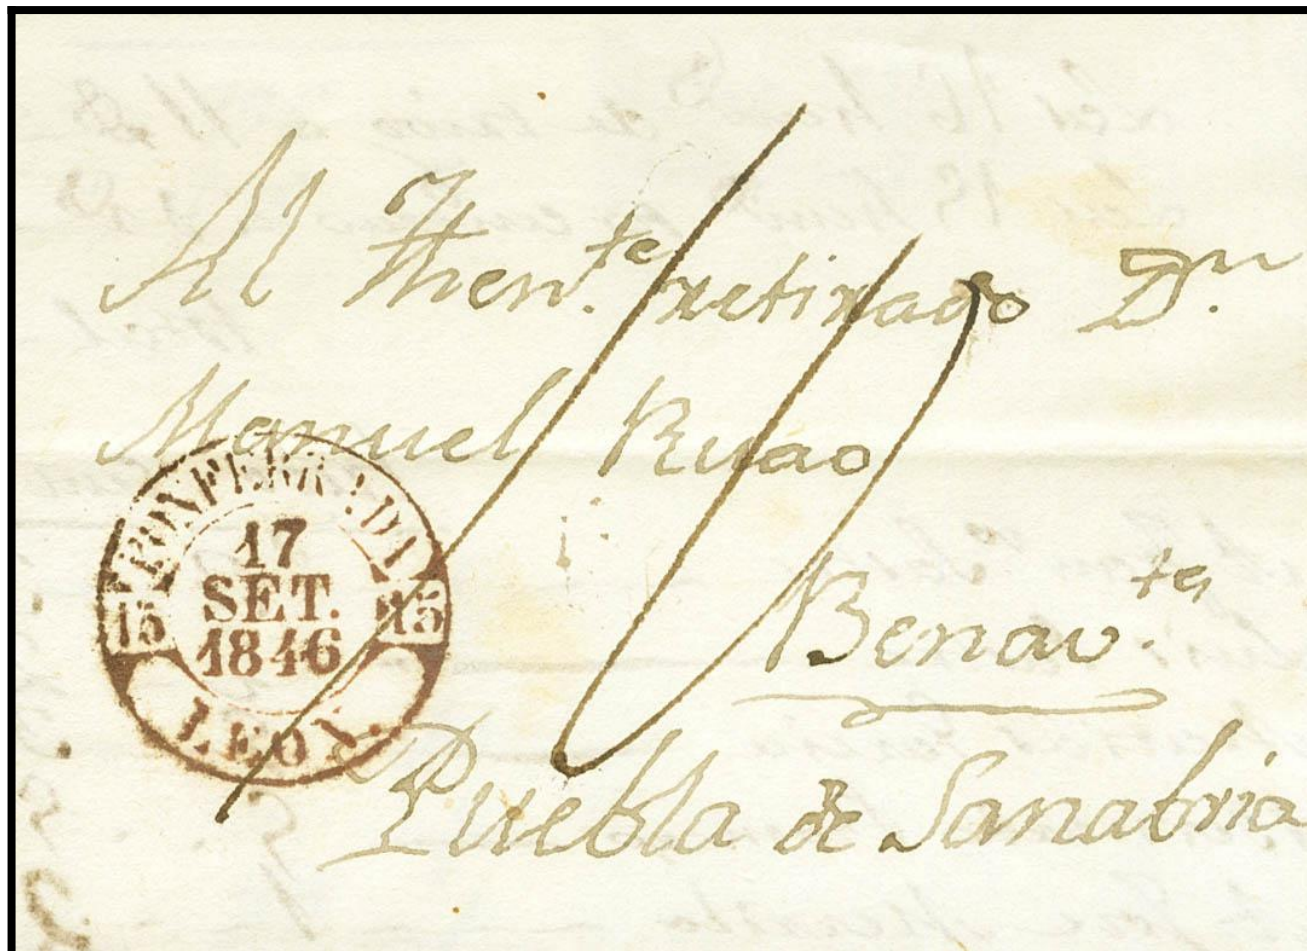 Al Then.te retirado Dn.
Manuel Ruao
Benav.te
Puebla de Sanabria
PONFERRADA
15 17 15
SET.
1846
LEON.